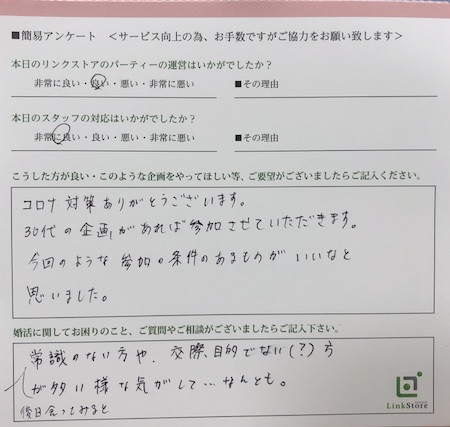 ■簡易アンケート　＜サービス向上の為、お手数ですがご協力をお願い致します＞
本日のリンクストアのパーティーの運営はいかがでしたか？
非常に良い・良い・悪い・非常に悪い　■その理由
本日のスタッフの対応はいかがでしたか？
非常に良い・良い・悪い・非常に悪い　■その理由
こうした方が良い・このような企画をやってほしい等、ご要望がございましたらご記入ください。
コロナ対策ありがとうございます。
30代の企画があれば参加させていただきます。
今回のような参加の条件のあるものがいいなと
思いました。
婚活に関してお困りのこと、ご質問やご相談がございましたらご記入下さい。
常識のない方や、交際目的でない(？)方
が多い様な気がして…なんとも。
後日会ってみると
LinkStore